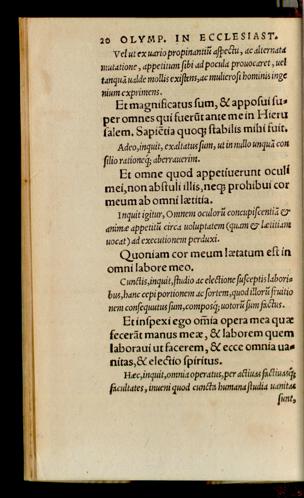 20 OLYMP. IN ECCLESIAST.
Vel ut ex uario propinantiũ aſpectu, ac alternata
mutatione, appetitum ſibi ad pocula prouocaret, uel
tanquã ualde mollis exiſtens, ac mulieroſi hominis inge
nium exprimens.
Et magnificatus ſum, & appoſui ſu-
per omnes qui fuerũt ante me in Hieru
ſalem. Sapiẽtia quoqꝫ ſtabilis mihi fuit.
Adeo, inquit, exaltatus ſum, ut in nullo unquã con
ſilio rationeqꝫ aberrauerim.
Et omne quod appetiuerunt oculi
mei, non abſtuli illis, neqꝫ prohibui cor
meum ab omni lætitia.
Inquit igitur, Omnem oculorũ concupiſcentiã &
animæ appetitũ circa uoluptatem (quam & lætitiam
uocat) ad executionem perduxi.
Quoniam cor meum lætatum eſt in
omni labore meo.
Cunctis, inquit, ſtudio ac electione ſuſceptis labori-
bus, hanc cepi portionem ac ſortem, quod illorũ fruitio
nem conſequutus ſum, compoſqꝫ uotorũ ſum factus.
Et inſpexi ego om̃ia opera mea quæ
fecerãt manus meæ, & laborem quem
laboraui ut facerem, & ecce omnia ua-
nitas, & electio ſpiritus.
Hæc, inquit, omnia operatus, per actiuas factiuasqꝫ
facultates, inueni quod cuncta humana ſtudia uanitas
ſunt,